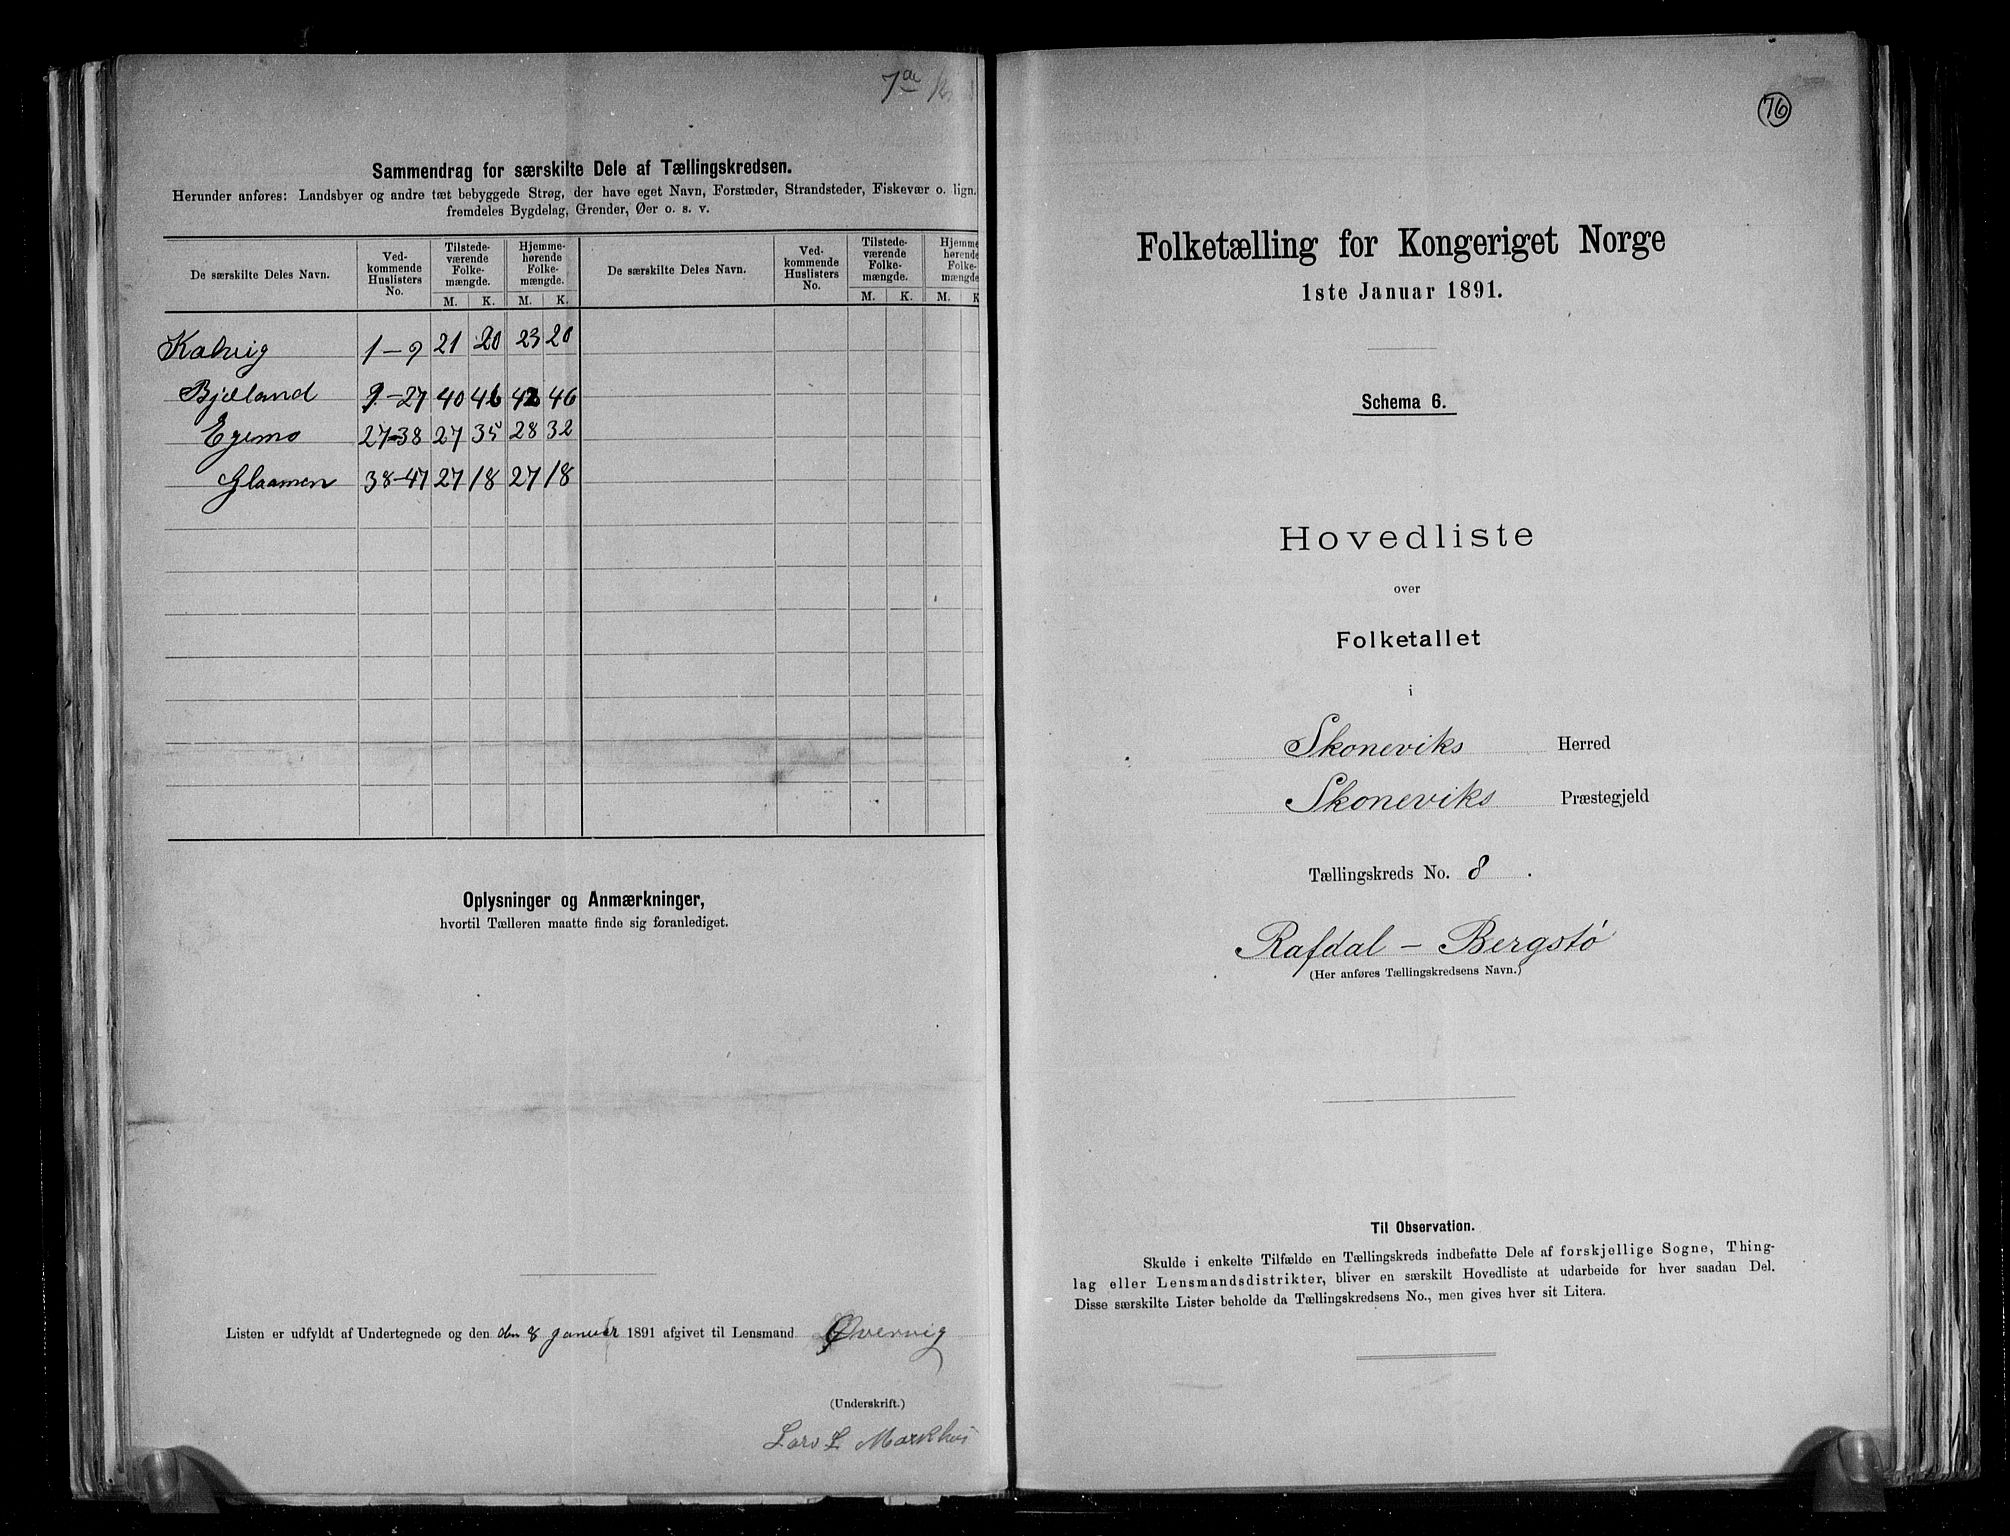 7de
Sammendrag for særskilte Dele af Tællingskredsen.
Herunder anføres: Landsbyer og andre tæt bebyggede Strøg, der have eget Navn, Forstæder, Strandsteder, Fiskevær o. lign.
fremdeles Bygdelag, Grender, Øer o. s. v.
De særskilte Deles Navn. Ved-kommende Huslisters No. Tilstede-værende Folke-mængde. Hjemme-hørende Folke-mængde. De særskilte Deles Navn. Ved-kommende Huslisters No. Tilstede-værende Folke-mængde. Hjemme-hørende Folke-mængde.
M. K. M. K. M. K. M. K
Kalvig 1-9 21 20 23 20
Bjelland 9-27 40 46 42 46
Egemo 27-38 27 35 28 32
Glaamen 38-47 27 18 27 18
Oplysninger og Anmærkninger,
hvortil Tælleren maatte finde sig foranlediget.
Listen er udfyldt af Undertegnede og den den 8 januar 1891 afgivet til Lensmand Øvervig
(Underskrift.)
Lars L Markhus
76
Folketælling for Kongeriget Norge
1ste Januar 1891.
Schema 6.
Hovedliste
over
Folketallet
i
Skoneviks Herred
Skoneviks Præstegjeld
Tællingskreds No. 8.
Rafdal - Bergstø
(Her anføres Tællingskredsens Navn.)
Til Observation.
Skulde i enkelte Tilfælde en Tællingskreds indbefatte Dele af forskjellige Sogne, Thing-
lag eller Lensmandsdistrikter, bliver en særskilt Hovedliste at udarbeide for hver saadan Del.
Disse særskilte Lister beholde da Tællingskredsens No., men gives hver sit Litera.